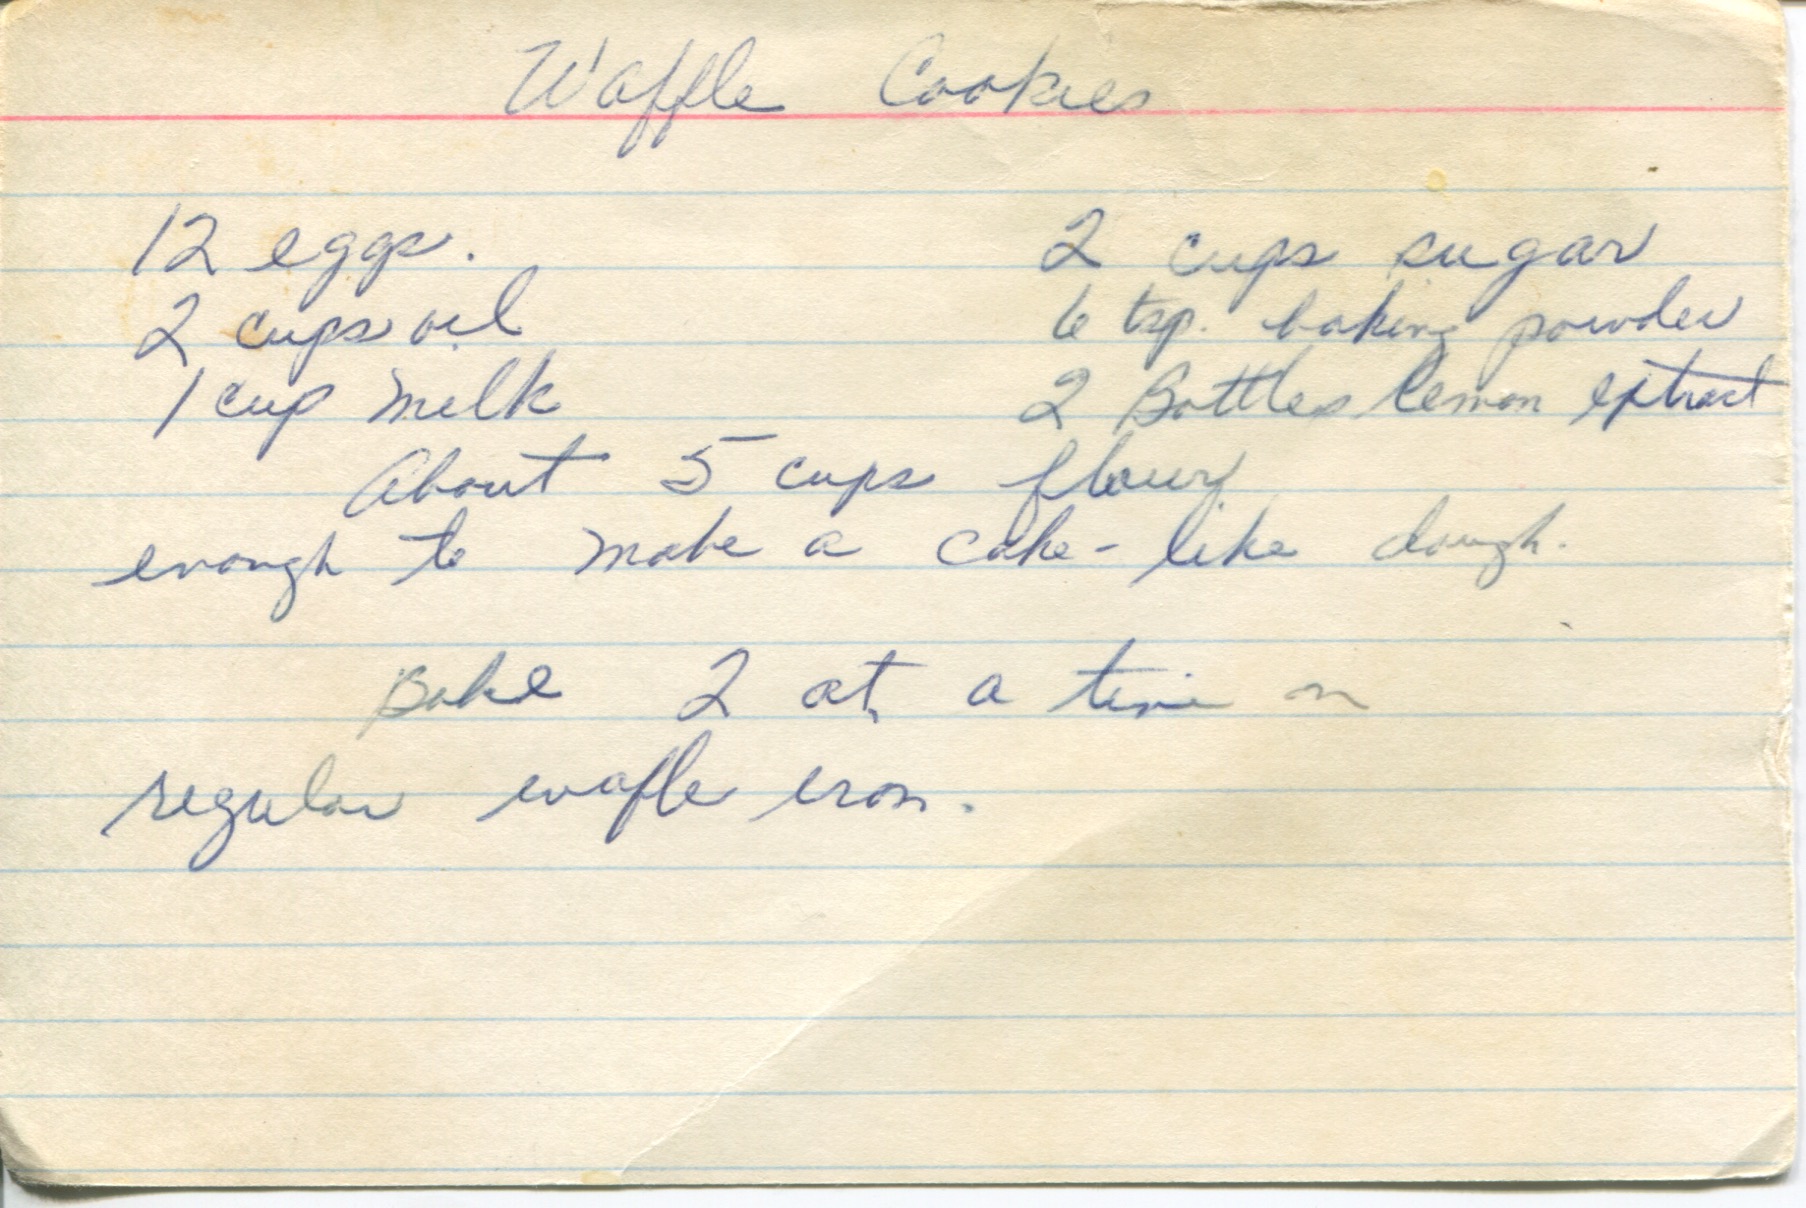 Waffle Cookies
12 eggs. 2 cups sugar
2 cups oil 6 tsp. baking powder
1 cup milk 2 Bottles lemon extract
About 5 cups flour
enough to make a cake-like dough.
Bake 2 at a time on
regular wafle iron.